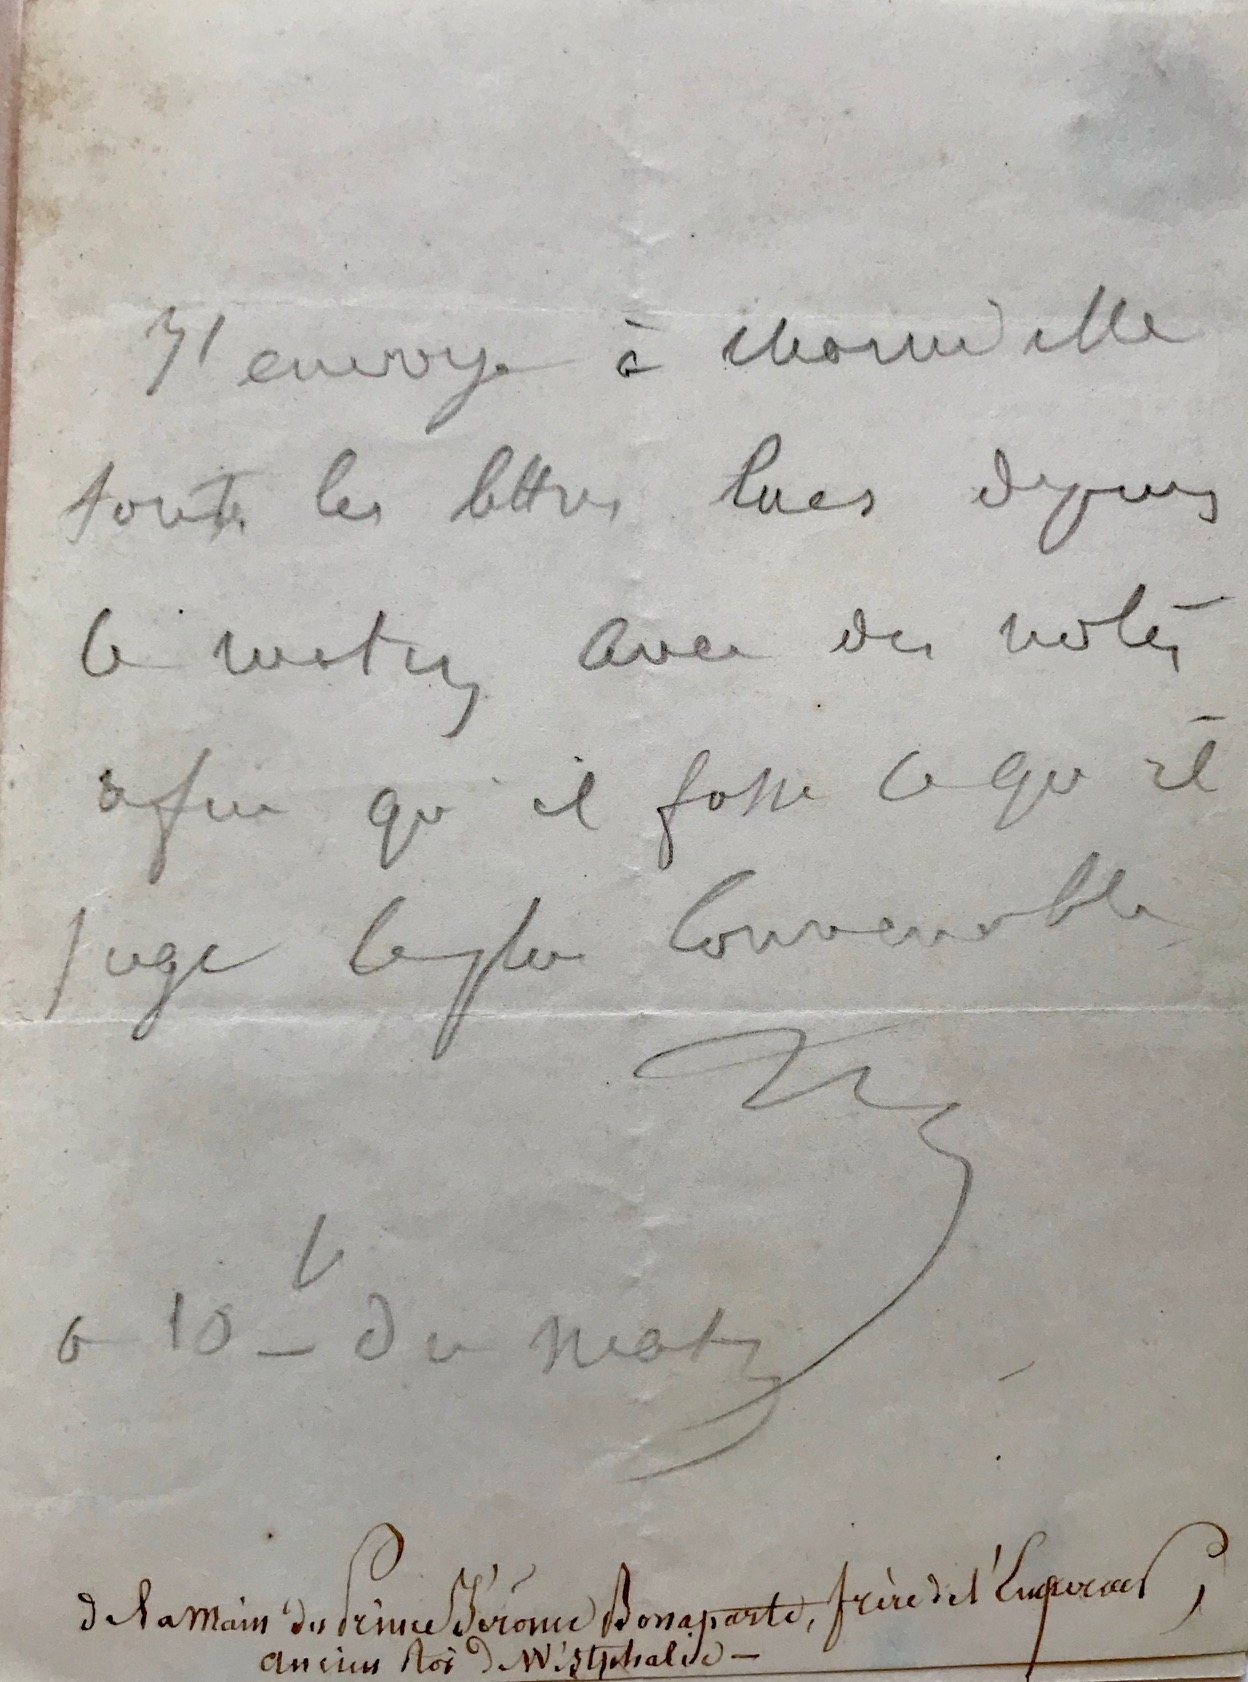 J'envoye à
toutes les lettres lues depuis
ce matin avec des notes
afin qu'il fasse ce qu'il
juge le plus convenable
a 10 h du matin
de la main du Prince Jérôme Bonaparte, frère de l'Empereur,
ancien Roi de Westphalie —